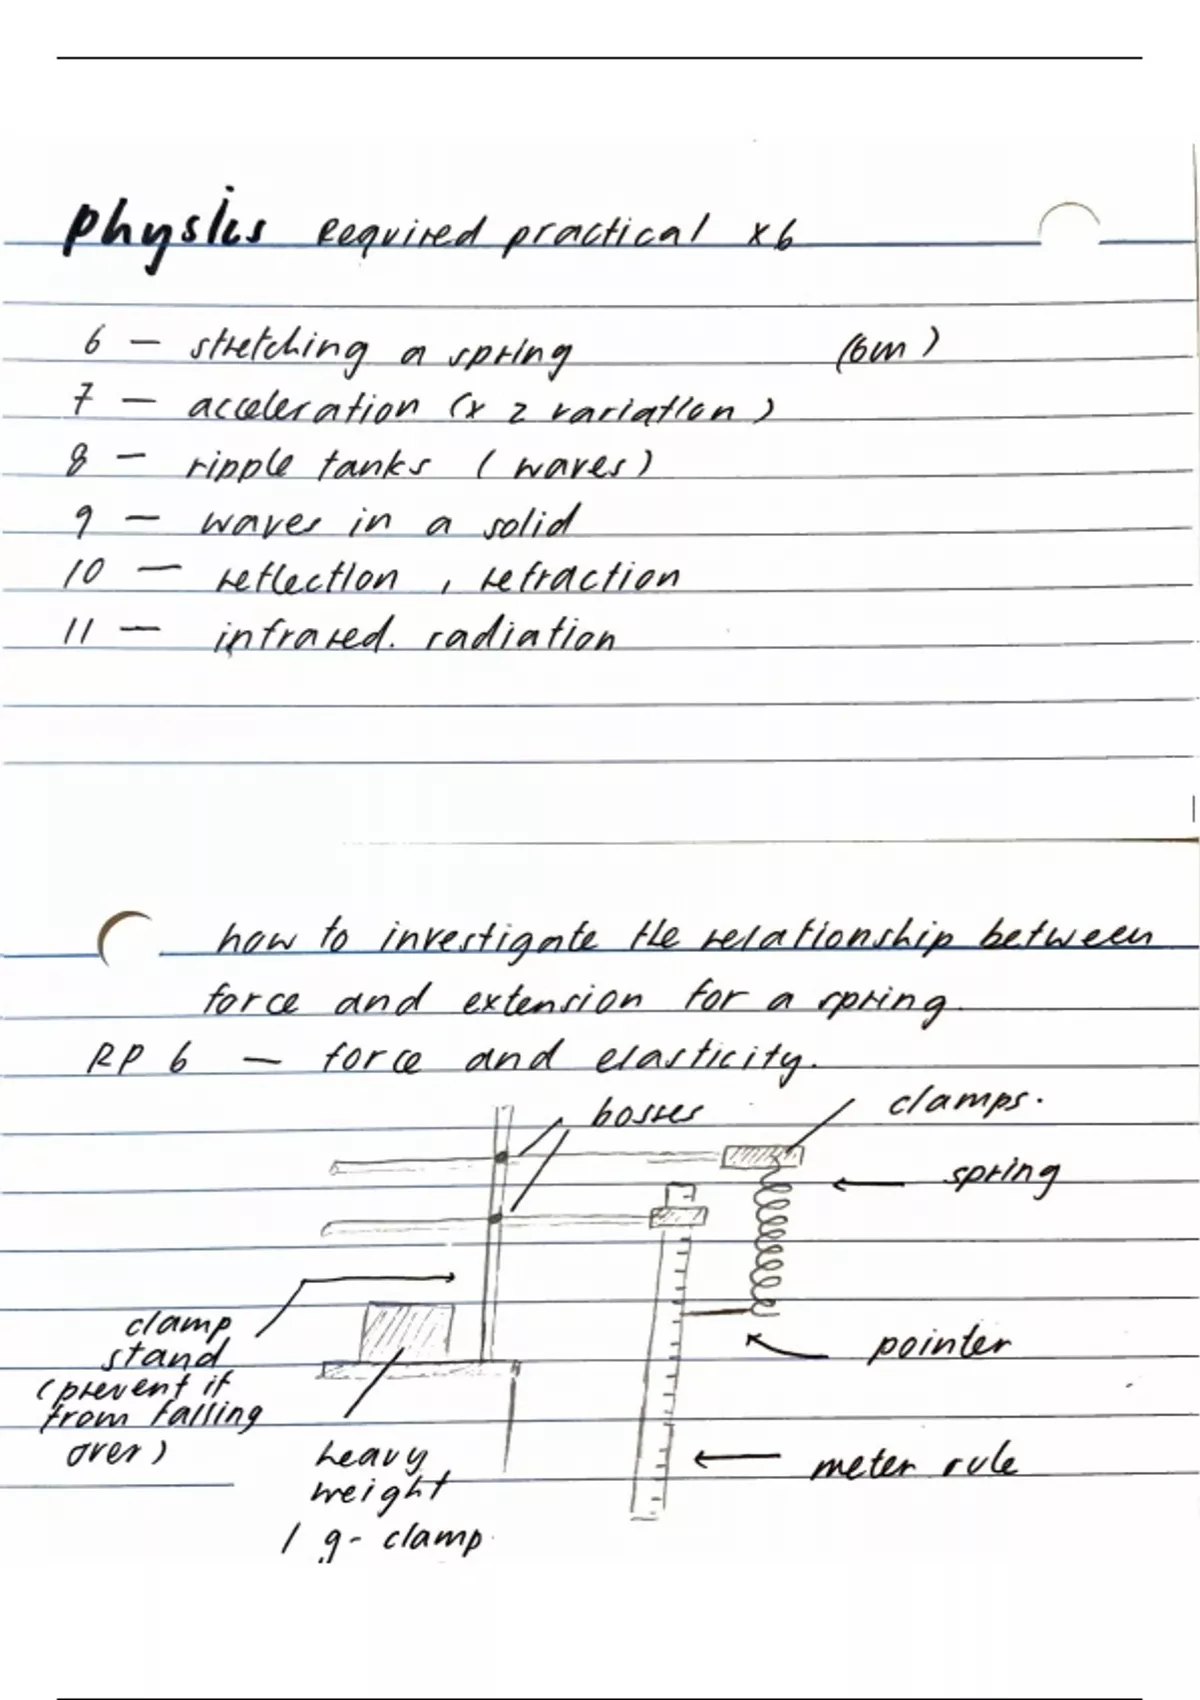 physics Required practical x6
6 — stretching a spring (6m)
7 — acceleration (x 2 variation)
8 — ripple tanks (waves)
9 — waves in a solid
10 — reflection, refraction
11 — infrared. radiation
how to investigate the relationship between
force and extension for a spring.
RP 6 — force and elasticity.
bosses
clamps.
spring
clamp
stand
(prevent it
from falling
over)
pointer
heavy
weight
/ g-clamp
meter rule